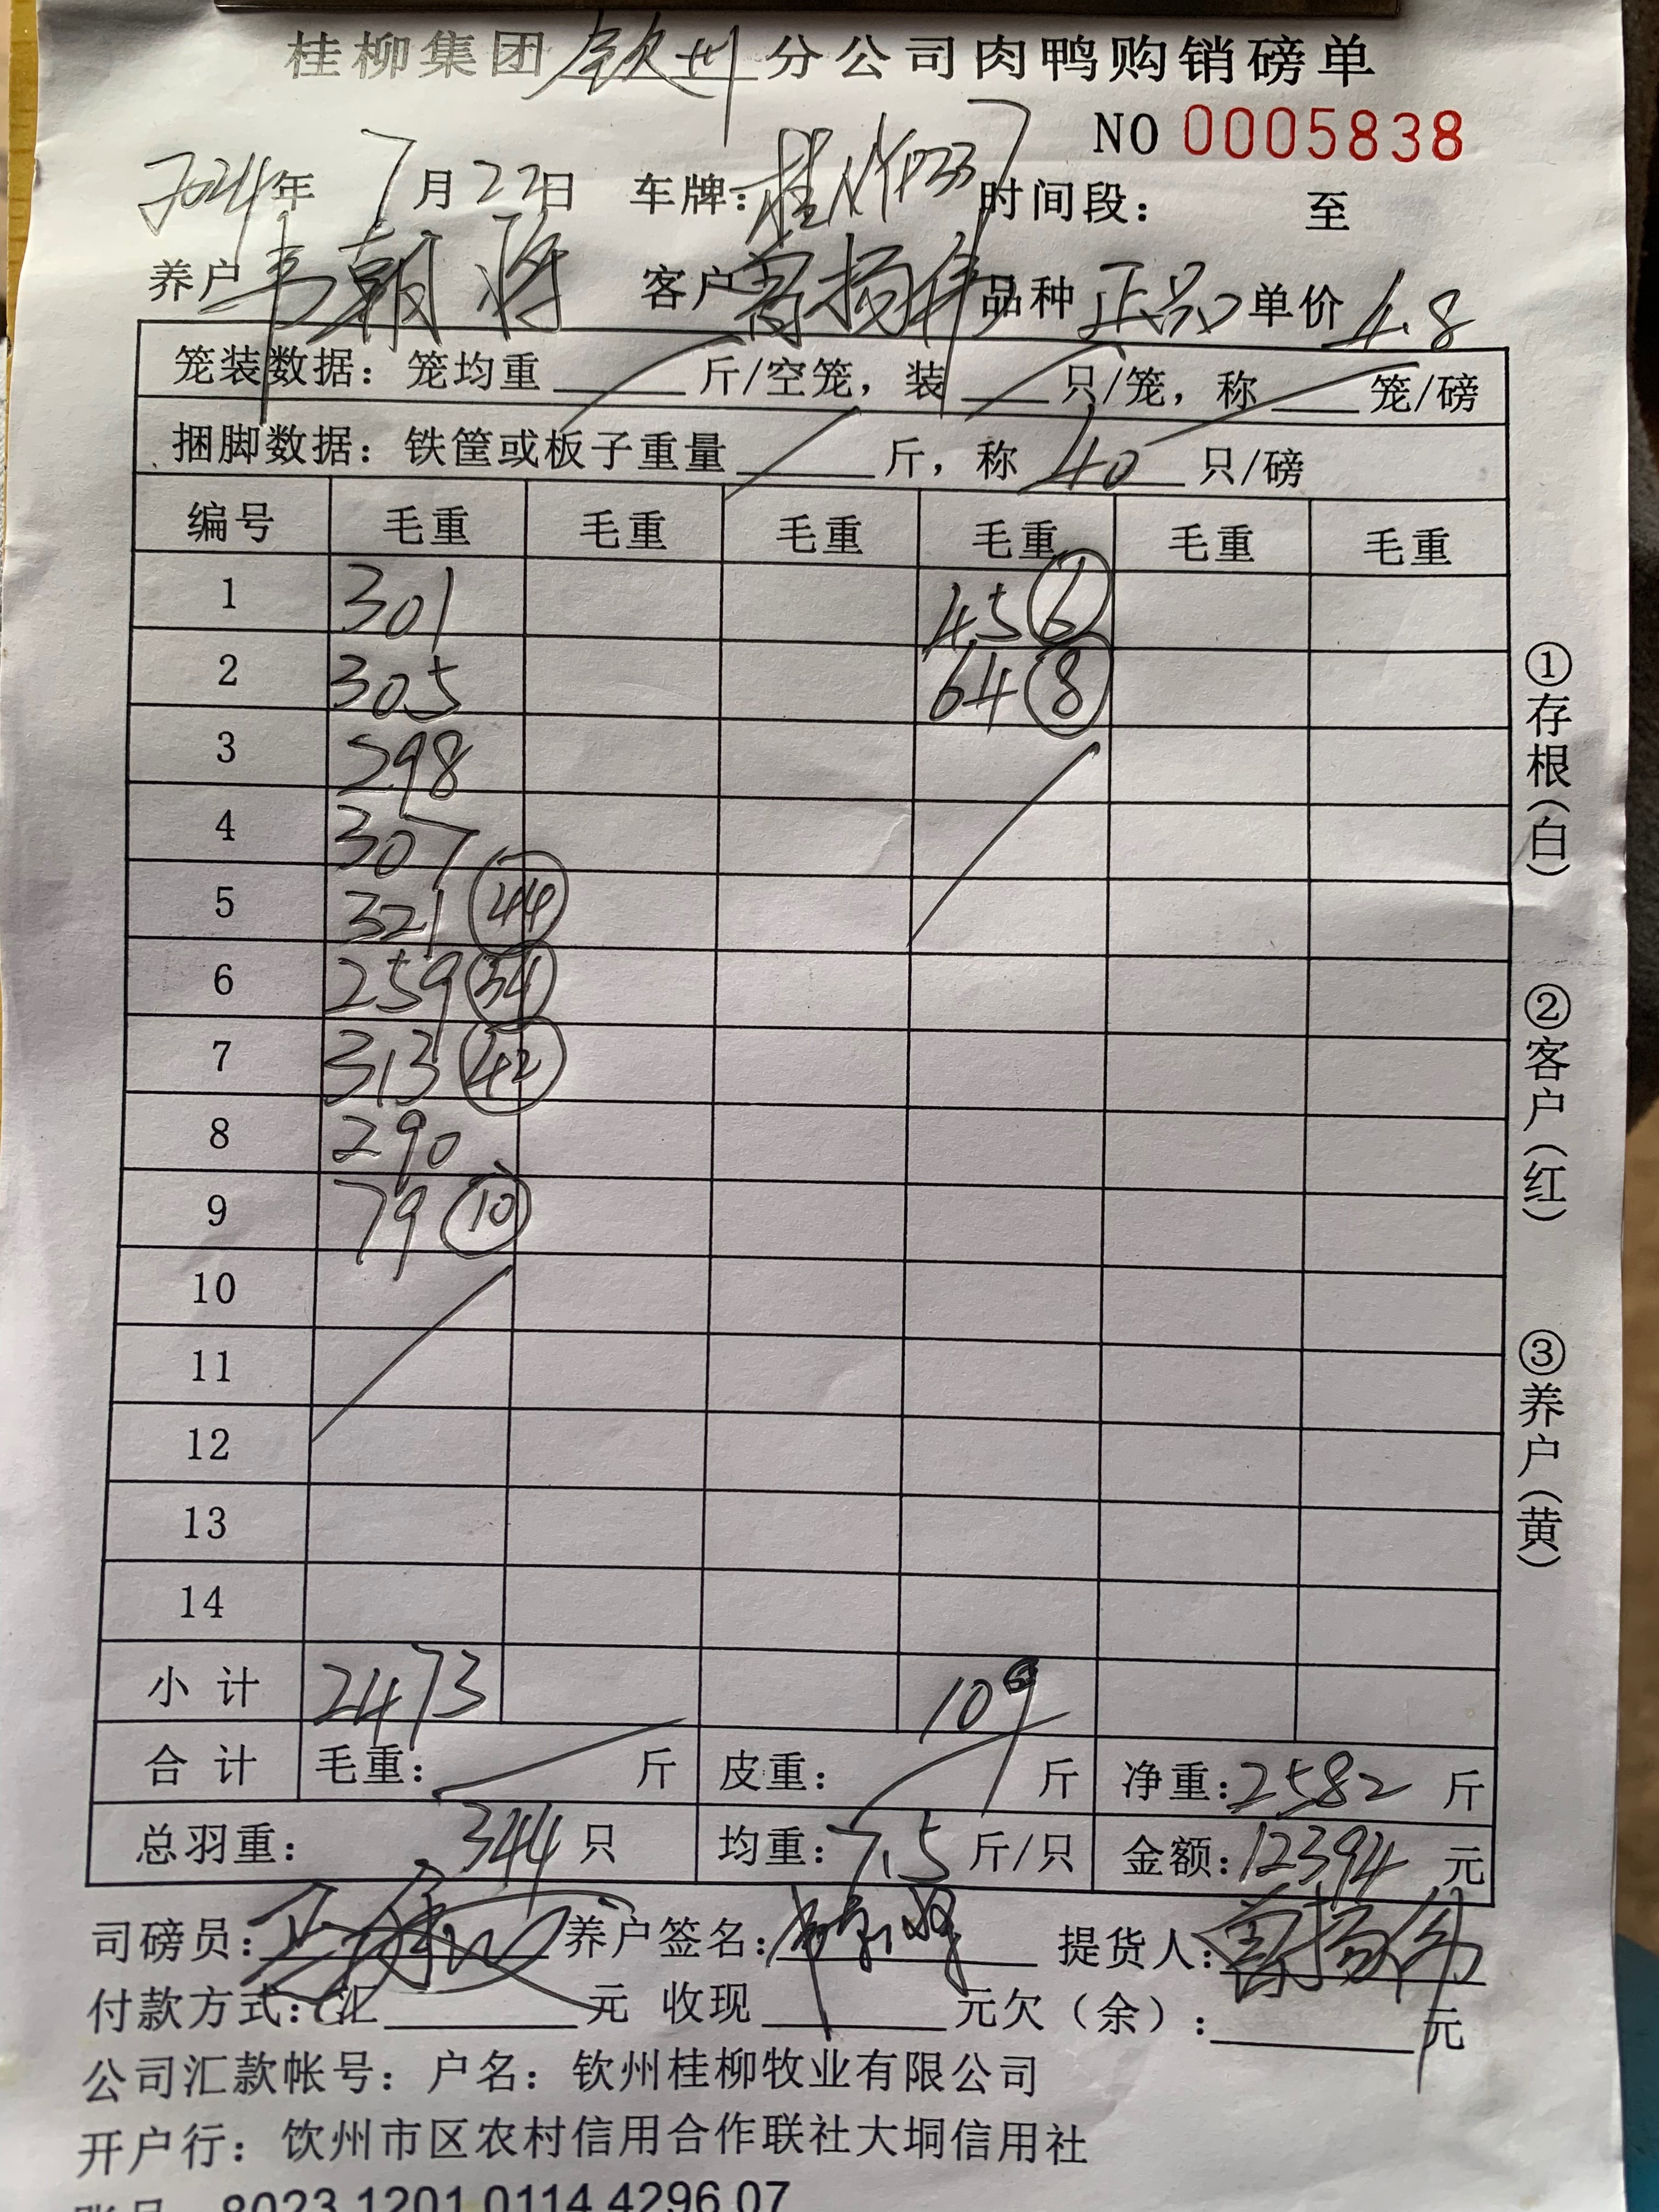 桂柳集团 钦州 分公司肉鸭购销磅单
NO 0005838
2024年 7月22日 车牌: 时间段: 至
养户 韦朝将 客户 曾扬伟 品种 正品 单价 4.8
笼装数据: 笼均重 斤/空笼, 装 只/笼, 称 笼/磅
捆脚数据: 铁筐或板子重量 斤, 称 40 只/磅
编号 毛重 毛重 毛重 毛重 毛重 毛重
1 301 45 ⑥
2 305 64 ⑧
3 298
4 307
5 321 ㊹
6 259 ㉞
7 313 ㊷
8 290
9 79 ⑩
10
11
12
13
14
小计 2473 109
合计 毛重: 斤 皮重: 斤 净重: 2582 斤
总羽重: 344 只 均重: 7.5 斤/只 金额: 12394 元
司磅员: 养户签名: 提货人: 曾扬伟
付款方式: 汇 元 收现 元欠(余): 元
公司汇款帐号: 户名: 钦州桂柳牧业有限公司
开户行: 钦州市区农村信用合作联社大垌信用社
账号 8023 1201 0114 4296 07
①存根(白)
②客户(红)
③养户(黄)